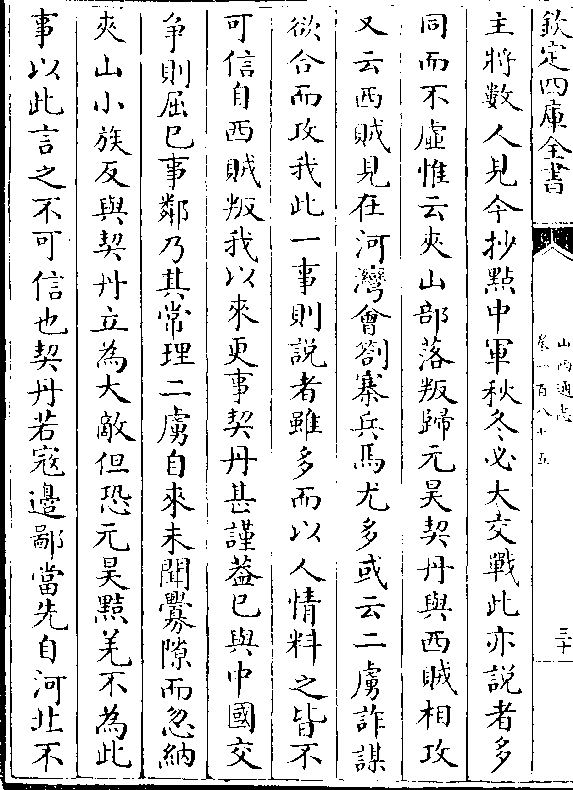 欽定四庫全書
山西通志
卷一百八十五
三十
主將數人見今抄點中軍秋冬必大交戰此亦說者多
同而不虛惟云夾山部落叛歸元昊契丹與西賊相攻
又云西賊見在河灣會劄寨兵馬尤多或云二虜詐謀
欲合而攻我此一事則説者雖多而以人情料之皆不
可信自西賊叛我以來更事契丹甚謹葢已與中國交
争則屈已事鄰乃其常理二虜自來未聞釁隙而忽納
夾山小族反與契丹立為大敵但恐元昊黠羌不為此
事以此言之不可信也契丹若寇邊鄙當先自河北不